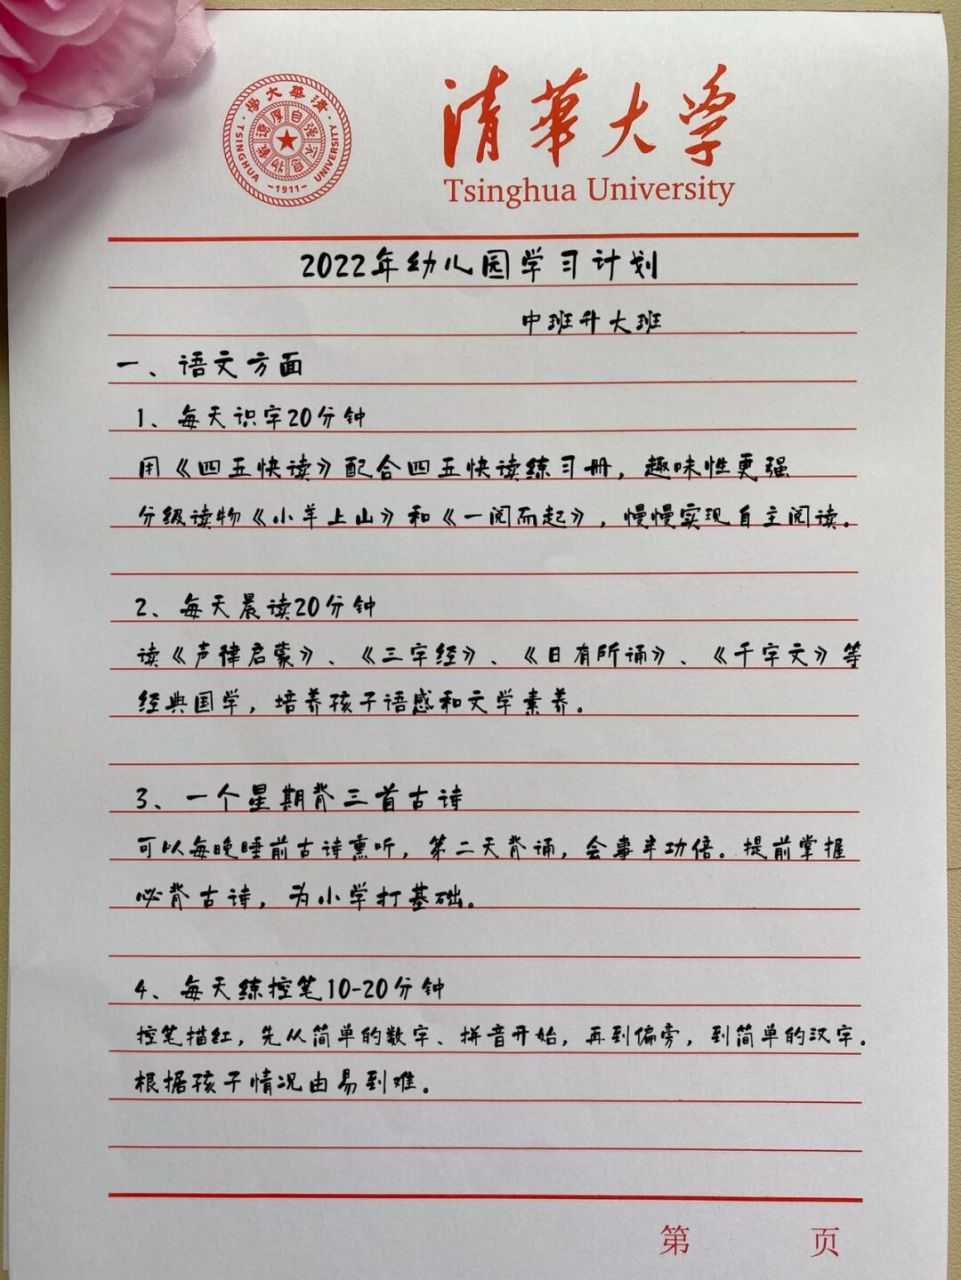 清華大学
Tsinghua University
清華大學
自强不息厚德載物
TSINGHUA UNIVERSITY
-1911-
2022年幼儿园学习计划
中班升大班
一、语文方面
1、每天识字20分钟
用《四五快读》配合四五快读练习册，趣味性更强
分级读物《小羊上山》和《一阅而起》，慢慢实现自主阅读。
2、每天晨读20分钟
读《声律启蒙》、《三字经》、《日有所诵》、《千字文》等
经典国学，培养孩子语感和文学素养。
3、一个星期背三首古诗
可以每晚睡前古诗熏听，第二天背诵，会事半功倍。提前掌握
必背古诗，为小学打基础。
4、每天练控笔10-20分钟
控笔描红，先从简单的数字、拼音开始，再到偏旁，到简单的汉字。
根据孩子情况由易到难。
第 页